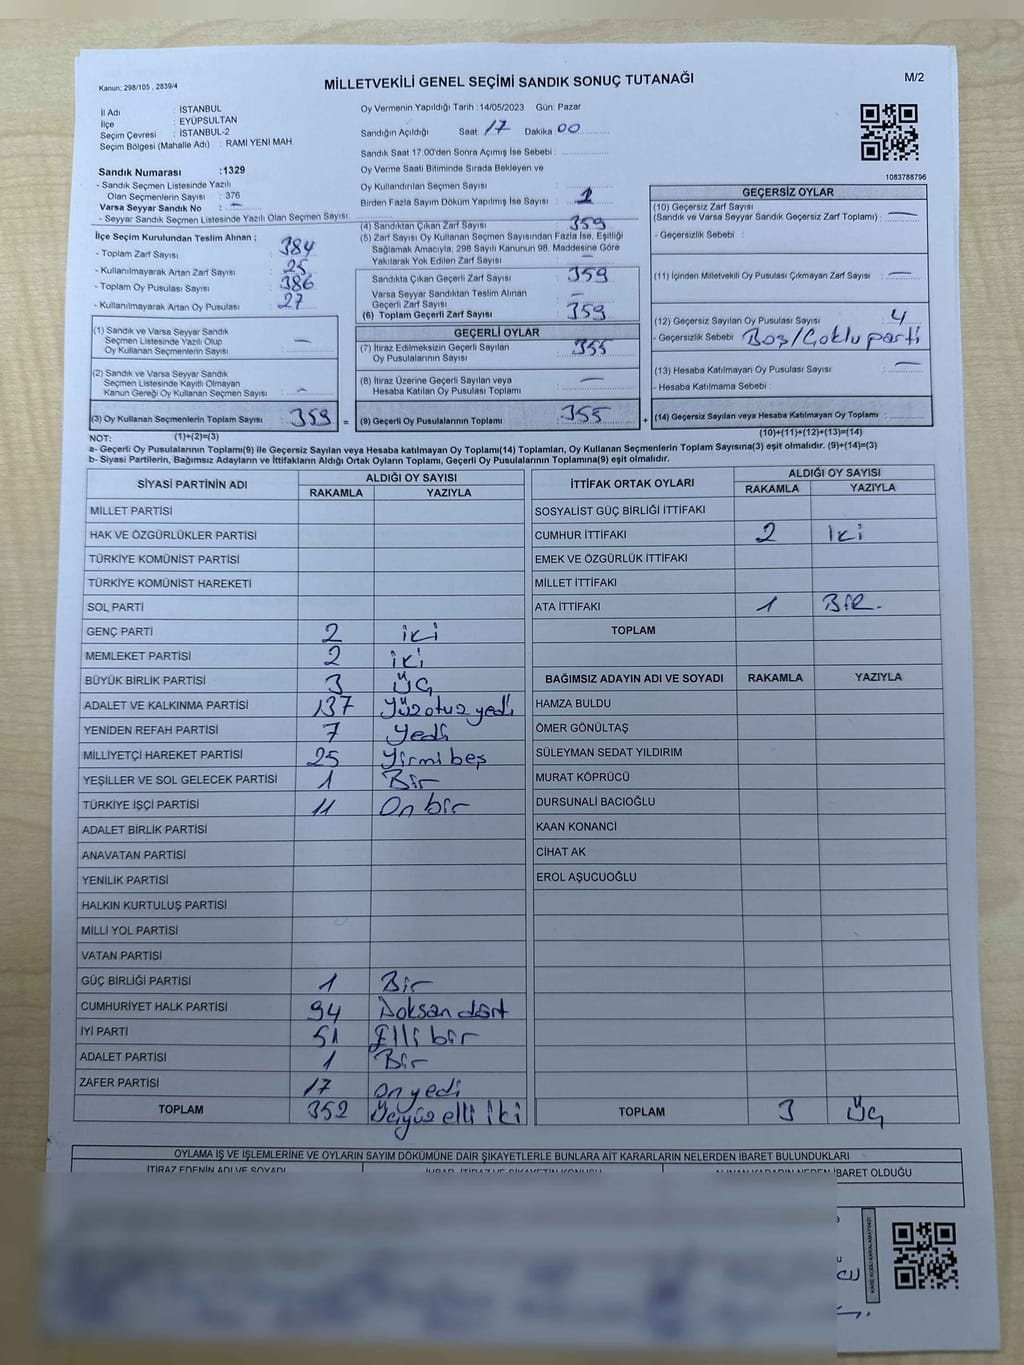 Kanun; 298/105 , 2839/4
MİLLETVEKİLİ GENEL SEÇİMİ SANDIK SONUÇ TUTANAĞI
M/2
İl Adı : İSTANBUL
İlçe : EYÜPSULTAN
Seçim Çevresi : İSTANBUL-2
Seçim Bölgesi (Mahalle Adı) : RAMİ YENİ MAH.
Oy Vermenin Yapıldığı Tarih :14/05/2023 Gün: Pazar
Sandığın Açıldığı Saat 17 Dakika 00
Sandık Saat 17:00'den Sonra Açımış İse Sebebi :
Oy Verme Saati Bitiminde Sırada Bekleyen ve
Oy Kullandırılan Seçmen Sayısı :
Birden Fazla Sayım Döküm Yapılmış İse Sayısı : 1
1083788796
Sandık Numarası :1329
- Sandık Seçmen Listesinde Yazılı
Olan Seçmenlerin Sayısı : 376
Varsa Seyyar Sandık No : —
- Seyyar Sandık Seçmen Listesinde Yazılı Olan Seçmen Sayısı:
İlçe Seçim Kurulundan Teslim Alınan ;
- Toplam Zarf Sayısı : 384
- Kullanılmayarak Artan Zarf Sayısı : 25
- Toplam Oy Pusulası Sayısı : 386
- Kullanılmayarak Artan Oy Pusulası : 27
(1) Sandık ve Varsa Seyyar Sandık
Seçmen Listesinde Yazılı Olup
Oy Kullanan Seçmenlerin Sayısı : —
(2) Sandık ve Varsa Seyyar Sandık
Seçmen Listesinde Kayıtlı Olmayan
Kanun Gereği Oy Kullanan Seçmen Sayısı : —
(3) Oy Kullanan Seçmenlerin Toplam Sayısı : 359 =
(4) Sandıktan Çıkan Zarf Sayısı : 359
(5) Zarf Sayısı Oy Kullanan Seçmen Sayısından Fazla İse, Eşitliği
Sağlamak Amacıyla, 298 Sayılı Kanunun 98. Maddesine Göre
Yakılarak Yok Edilen Zarf Sayısı : —
Sandıkta Çıkan Geçerli Zarf Sayısı : 359
Varsa Seyyar Sandıktan Teslim Alınan
Geçerli Zarf Sayısı : —
(6) Toplam Geçerli Zarf Sayısı : 359
GEÇERLİ OYLAR
(7) İtiraz Edilmeksizin Geçerli Sayılan
Oy Pusulalarının Sayısı : 355
(8) İtiraz Üzerine Geçerli Sayılan veya
Hesaba Katılan Oy Pusulası Toplamı : —
(9) Geçerli Oy Pusulalarının Toplamı : 355 +
GEÇERSİZ OYLAR
(10) Geçersiz Zarf Sayısı
(Sandık ve Varsa Seyyar Sandık Geçersiz Zarf Toplamı) : —
- Geçersizlik Sebebi :
(11) İçinden Milletvekili Oy Pusulası Çıkmayan Zarf Sayısı : —
(12) Geçersiz Sayılan Oy Pusulası Sayısı : 4
- Geçersizlik Sebebi : Boş/Çoklu parti
(13) Hesaba Katılmayan Oy Pusulası Sayısı : —
- Hesaba Katılmama Sebebi :
(14) Geçersiz Sayılan veya Hesaba Katılmayan Oy Toplamı :
(10)+(11)+(12)+(13)=(14)
NOT: (1)+(2)=(3)
a- Geçerli Oy Pusulalarının Toplamı(9) ile Geçersiz Sayılan veya Hesaba katılmayan Oy Toplamı(14) Toplamları, Oy Kullanan Seçmenlerin Toplam Sayısına(3) eşit olmalıdır. (9)+(14)=(3)
b- Siyasi Partilerin, Bağımsız Adayların ve İttifakların Aldığı Ortak Oyların Toplamı, Geçerli Oy Pusulalarının Toplamına(9) eşit olmalıdır.
SİYASİ PARTİNİN ADI ALDIĞI OY SAYISI
RAKAMLA YAZIYLA
MİLLET PARTİSİ
HAK VE ÖZGÜRLÜKLER PARTİSİ
TÜRKİYE KOMÜNİST PARTİSİ
TÜRKİYE KOMÜNİST HAREKETİ
SOL PARTİ
GENÇ PARTİ 2 iki
MEMLEKET PARTİSİ 2 iki
BÜYÜK BİRLİK PARTİSİ 3 Üç
ADALET VE KALKINMA PARTİSİ 137 Yüzotuzyedi
YENİDEN REFAH PARTİSİ 7 Yedi
MİLLİYETÇİ HAREKET PARTİSİ 25 Yirmi beş
YEŞİLLER VE SOL GELECEK PARTİSİ 1 Bir
TÜRKİYE İŞÇİ PARTİSİ 11 On bir
ADALET BİRLİK PARTİSİ
ANAVATAN PARTİSİ
YENİLİK PARTİSİ
HALKIN KURTULUŞ PARTİSİ
MİLLİ YOL PARTİSİ
VATAN PARTİSİ
GÜÇ BİRLİĞİ PARTİSİ 1 Bir
CUMHURİYET HALK PARTİSİ 94 Doksan dört
İYİ PARTİ 51 Elli bir
ADALET PARTİSİ 1 Bir
ZAFER PARTİSİ 17 on yedi
TOPLAM 352 Üçyüz elli iki
İTTİFAK ORTAK OYLARI ALDIĞI OY SAYISI
RAKAMLA YAZIYLA
SOSYALİST GÜÇ BİRLİĞİ İTTİFAKI
CUMHUR İTTİFAKI 2 iki
EMEK VE ÖZGÜRLÜK İTTİFAKI
MİLLET İTTİFAKI
ATA İTTİFAKI 1 BİR.
TOPLAM
BAĞIMSIZ ADAYIN ADI VE SOYADI RAKAMLA YAZIYLA
HAMZA BULDU
ÖMER GÖNÜLTAŞ
SÜLEYMAN SEDAT YILDIRIM
MURAT KÖPRÜCÜ
DURSUNALİ BACIOĞLU
KAAN KONANCİ
CİHAT AK
EROL AŞUCUOĞLU
TOPLAM 3 Üç
OYLAMA İŞ VE İŞLEMLERİNE VE OYLARIN SAYIM DÖKÜMÜNE DAİR ŞİKAYETLERLE BUNLARA AİT KARARLARIN NELERDEN İBARET BULUNDUKLARI
İTİRAZ EDENİN ADI VE SOYADI
ALINAN KARARIN NEDEN İBARET OLDUĞU